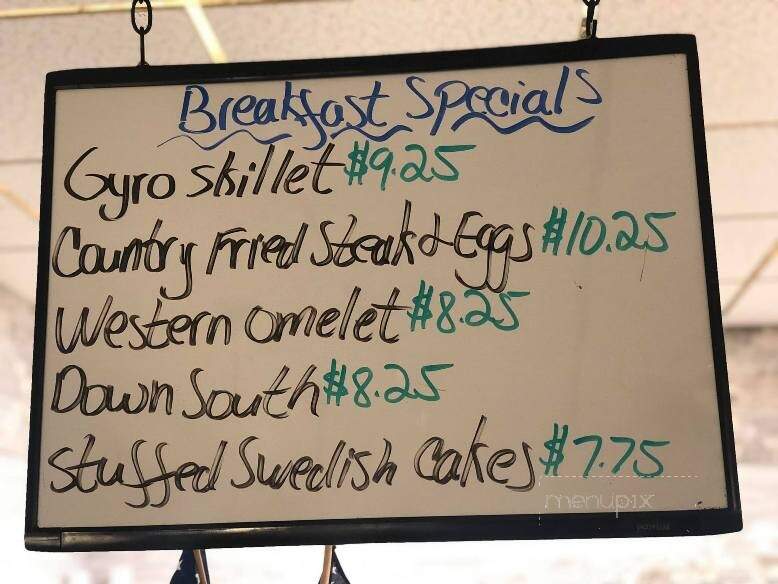 Breakfast Specials
Gyro skillet $9.25
Country Fried Steak & Eggs $10.25
Western omelet $8.25
Down South $8.25
Stuffed Swedish Cakes $7.75
menupix